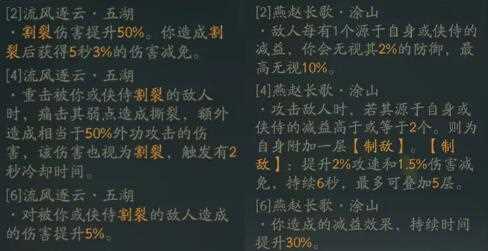 [2]流风逐云·五湖
·割裂伤害提升50%。你造成割
裂后获得5秒3%的伤害减免。
[4]流风逐云·五湖
·重击被你或侠侍割裂的敌人
时，痛击其弱点造成撕裂，额外
造成相当于50%外功攻击的伤
害，该伤害也视为割裂，触发有2
秒冷却时间。
[6]流风逐云·五湖
·对被你或侠侍割裂的敌人造成
的伤害提升5%。
[2]燕赵长歌·涂山
·敌人每有1个源于自身或侠侍的
减益，你会无视其2%的防御，最
高无视10%。
[4]燕赵长歌·涂山
·攻击敌人时，若其源于自身或
侠侍的减益高于或等于2个。则为
自身附加一层【制敌】。【制
敌】：提升2%攻速和1.5%伤害减
免，持续6秒，最多可叠加5层。
[6]燕赵长歌·涂山
·你造成的减益效果，持续时间
提升30%。